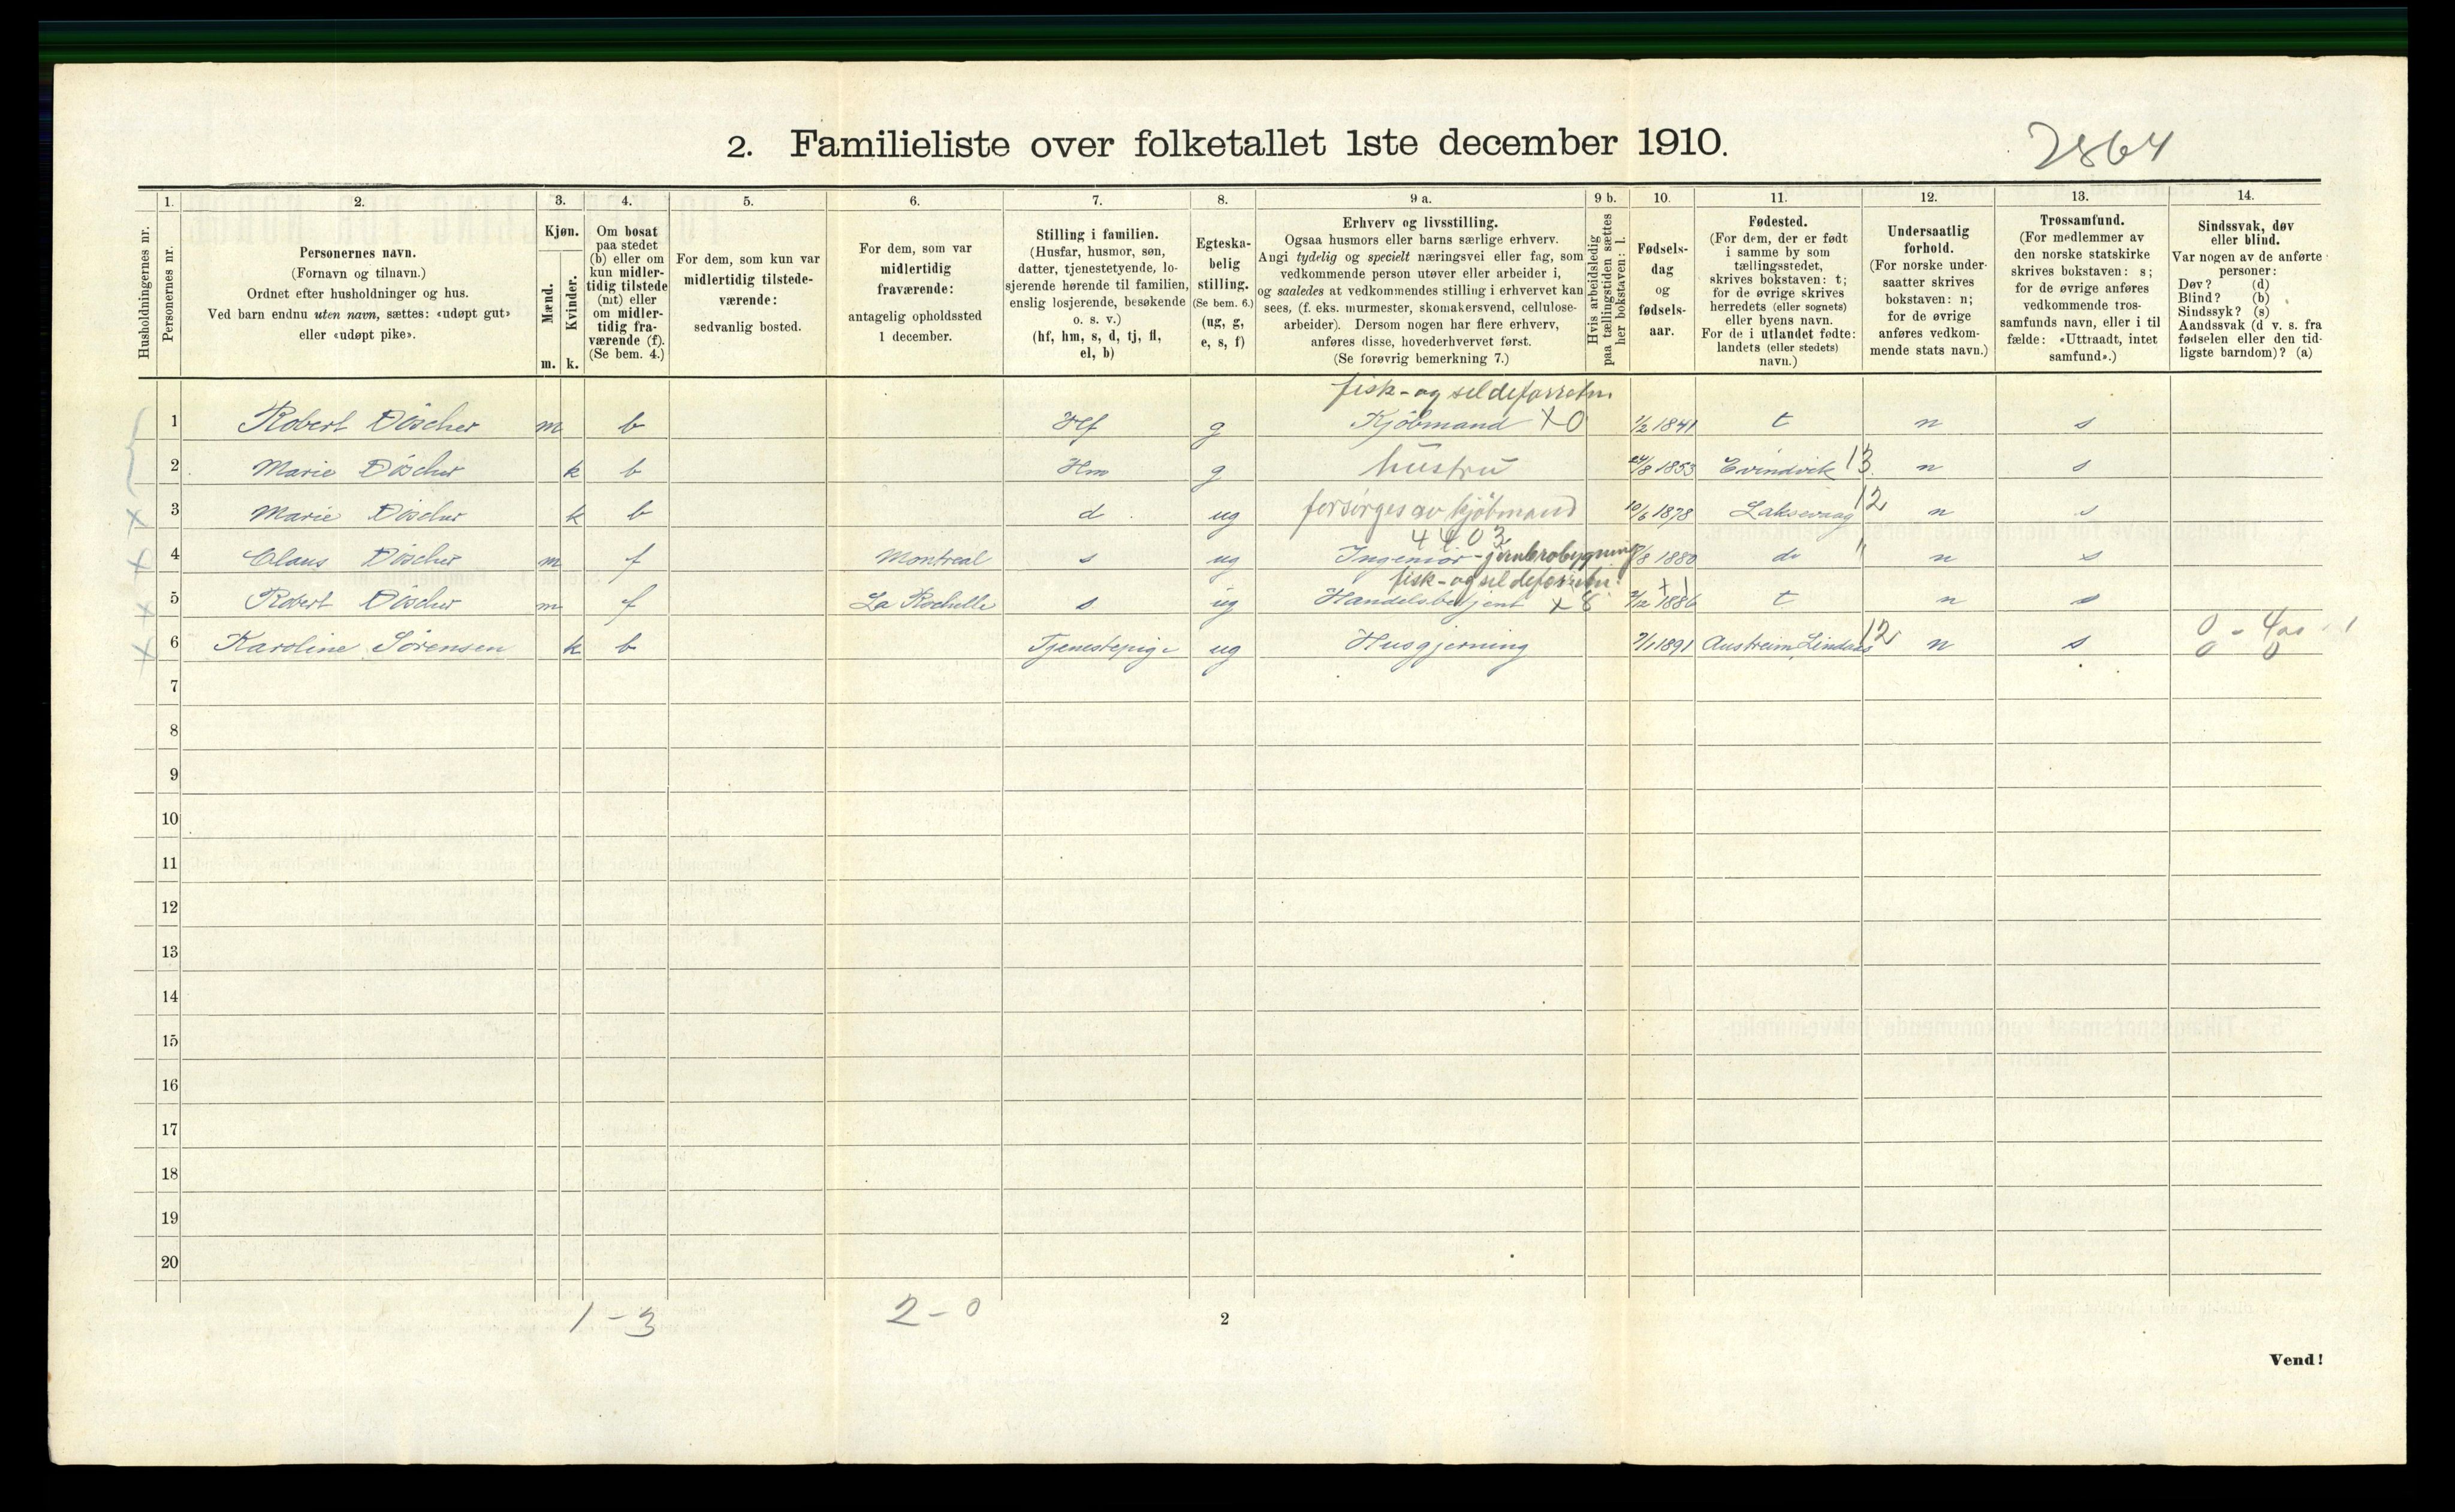 2. Familieliste over folketallet 1ste december 1910.
2864
Husholdningernes nr.
1.
Personernes nr.
2.
Personernes navn.
(Fornavn og tilnavn.)
Ordnet efter husholdninger og hus.
Ved barn endnu uten navn, sættes: «udøpt gut»
eller «udøpt pike».
3.
Kjøn.
Mænd.
Kvinder.
m. k.
4.
Om bosat
paa stedet
(b) eller om
kun midler-
tidig tilstede
(mt) eller
om midler-
tidig fra-
værende (f).
(Se bem. 4.)
5.
For dem, som kun var
midlertidig tilstede-
værende:
sedvanlig bosted.
6.
For dem, som var
midlertidig
fraværende:
antagelig opholdssted
1 december.
7.
Stilling i familien.
(Husfar, husmor, søn,
datter, tjenestetyende, lo-
sjerende hørende til familien,
enslig losjerende, besøkende
o. s. v.)
(hf, hm, s, d, tj, fl,
el, b)
8.
Egteska-
belig
stilling.
(Se bem. 6.)
(ug, g,
e, s, f)
9 a.
Erhverv og livsstilling.
Ogsaa husmors eller barns særlige erhverv.
Angi tydelig og specielt næringsvei eller fag, som
vedkommende person utøver eller arbeider i,
og saaledes at vedkommendes stilling i erhvervet kan
sees, (f. eks. murmester, skomakersvend, cellulose-
arbeider). Dersom nogen har flere erhverv,
anføres disse, hovederhvervet først.
(Se forøvrig bemerkning 7.)
9 b.
Hvis arbeidsledig
paa tællingstiden sættes
her bokstaven: l.
10.
Fødsels-
dag
og
fødsels-
aar.
11.
Fødested.
(For dem, der er født
i samme by som
tællingsstedet,
skrives bokstaven: t;
for de øvrige skrives
herredets (eller sognets)
eller byens navn.
For de i utlandet fødte:
landets (eller stedets)
navn.)
12.
Undersaatlig
forhold.
(For norske under-
saatter skrives
bokstaven: n;
for de øvrige
anføres vedkom-
mende stats navn.)
13.
Trossamfund.
(For medlemmer av
den norske statskirke
skrives bokstaven: s;
for de øvrige anføres
vedkommende tros-
samfunds navn, eller i til-
fælde: «Uttraadt, intet
samfund».)
14.
Sindssvak, døv
eller blind.
Var nogen av de anførte
personer:
Døv? (d)
Blind? (b)
Sindssyk? (s)
Aandssvak (d v. s. fra
fødselen eller den tid-
ligste barndom)? (a)
fisk- og sildeforretn.
1 Robert Döscher m b Hf g Kjöbmand X0 1/2 1841 t n s
2 Marie Döscher k b Hm g hustru 24/8 1853 Evindvik 13 n s
3 Marie Döscher k b d ug forsörges av kjöbmand 10/6 1878 Laksevaag 12 n s
4403
4 Claus Döscher m f Montreal s ug Ingeniör - jernbrobygning /8 1880 do " n s
fisk- og sildeforretn. +1
5 Robert Döscher m f La Rochelle s ug Handelsbetjent x8 /12 1886 t n s
0 -
6 Karoline Sörensen k b Tjenestepige ug Husgjerning 7/1 1891 Austreim Lindaas 12 n s 0 0
7
8
9
10
11
12
13
14
15
16
17
18
19
20
1 - 3 2 - 0
2
Vend!